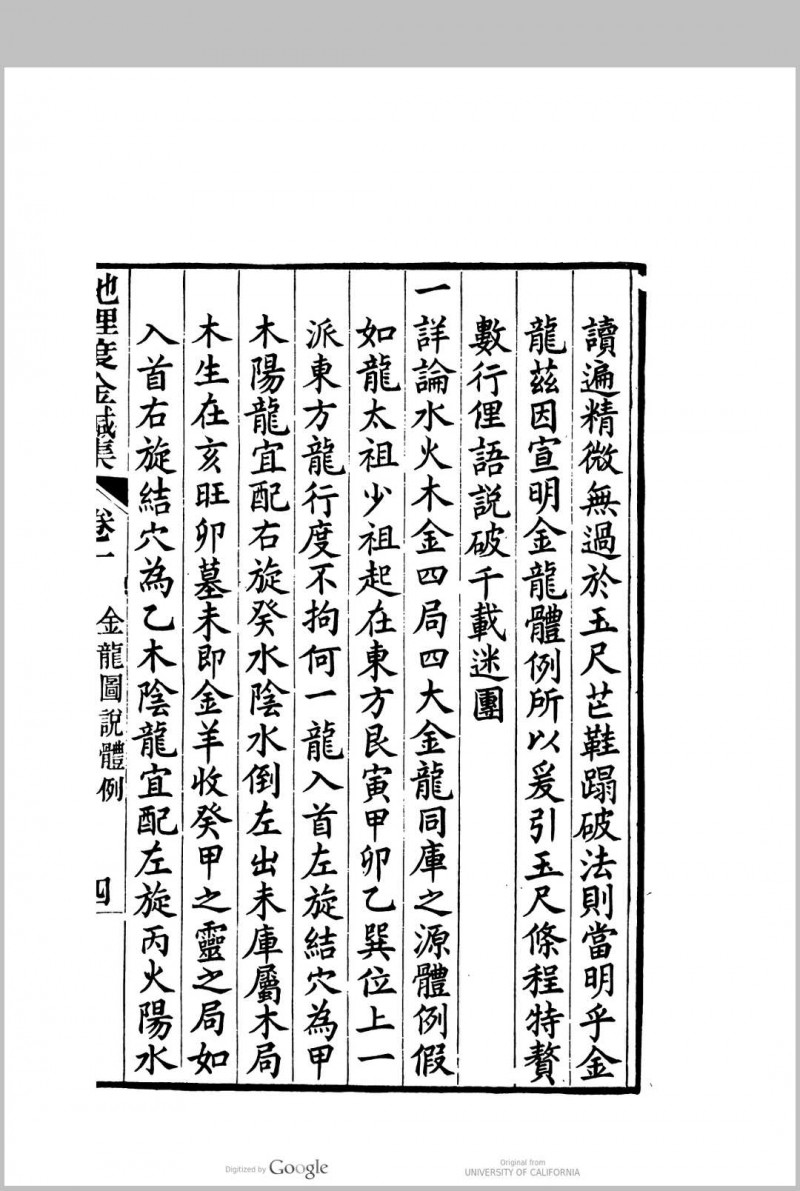 讀遍精微無過於玉尺芒鞋蹋破法則當明乎金
龍茲因宣明金龍體例所以爰引玉尺條程特贅
數行俚語說破千載迷團
一詳論水火木金四局四大金龍同庫之源體例假
如龍太祖少祖起在東方艮寅甲卯乙巽位上一
派東方龍行度不拘何一龍入首左旋結穴為甲
木陽龍宜配右旋癸水陰水倒左出未庫屬木局
木生在亥旺卯墓未即金羊收癸甲之靈之局如
入首右旋結穴為乙木陰龍宜配左旋丙火陽水
地理度金鍼集 卷一 金龍圖說體例 四
Digitized by Google
Original from
UNIVERSITY OF CALIFORNIA